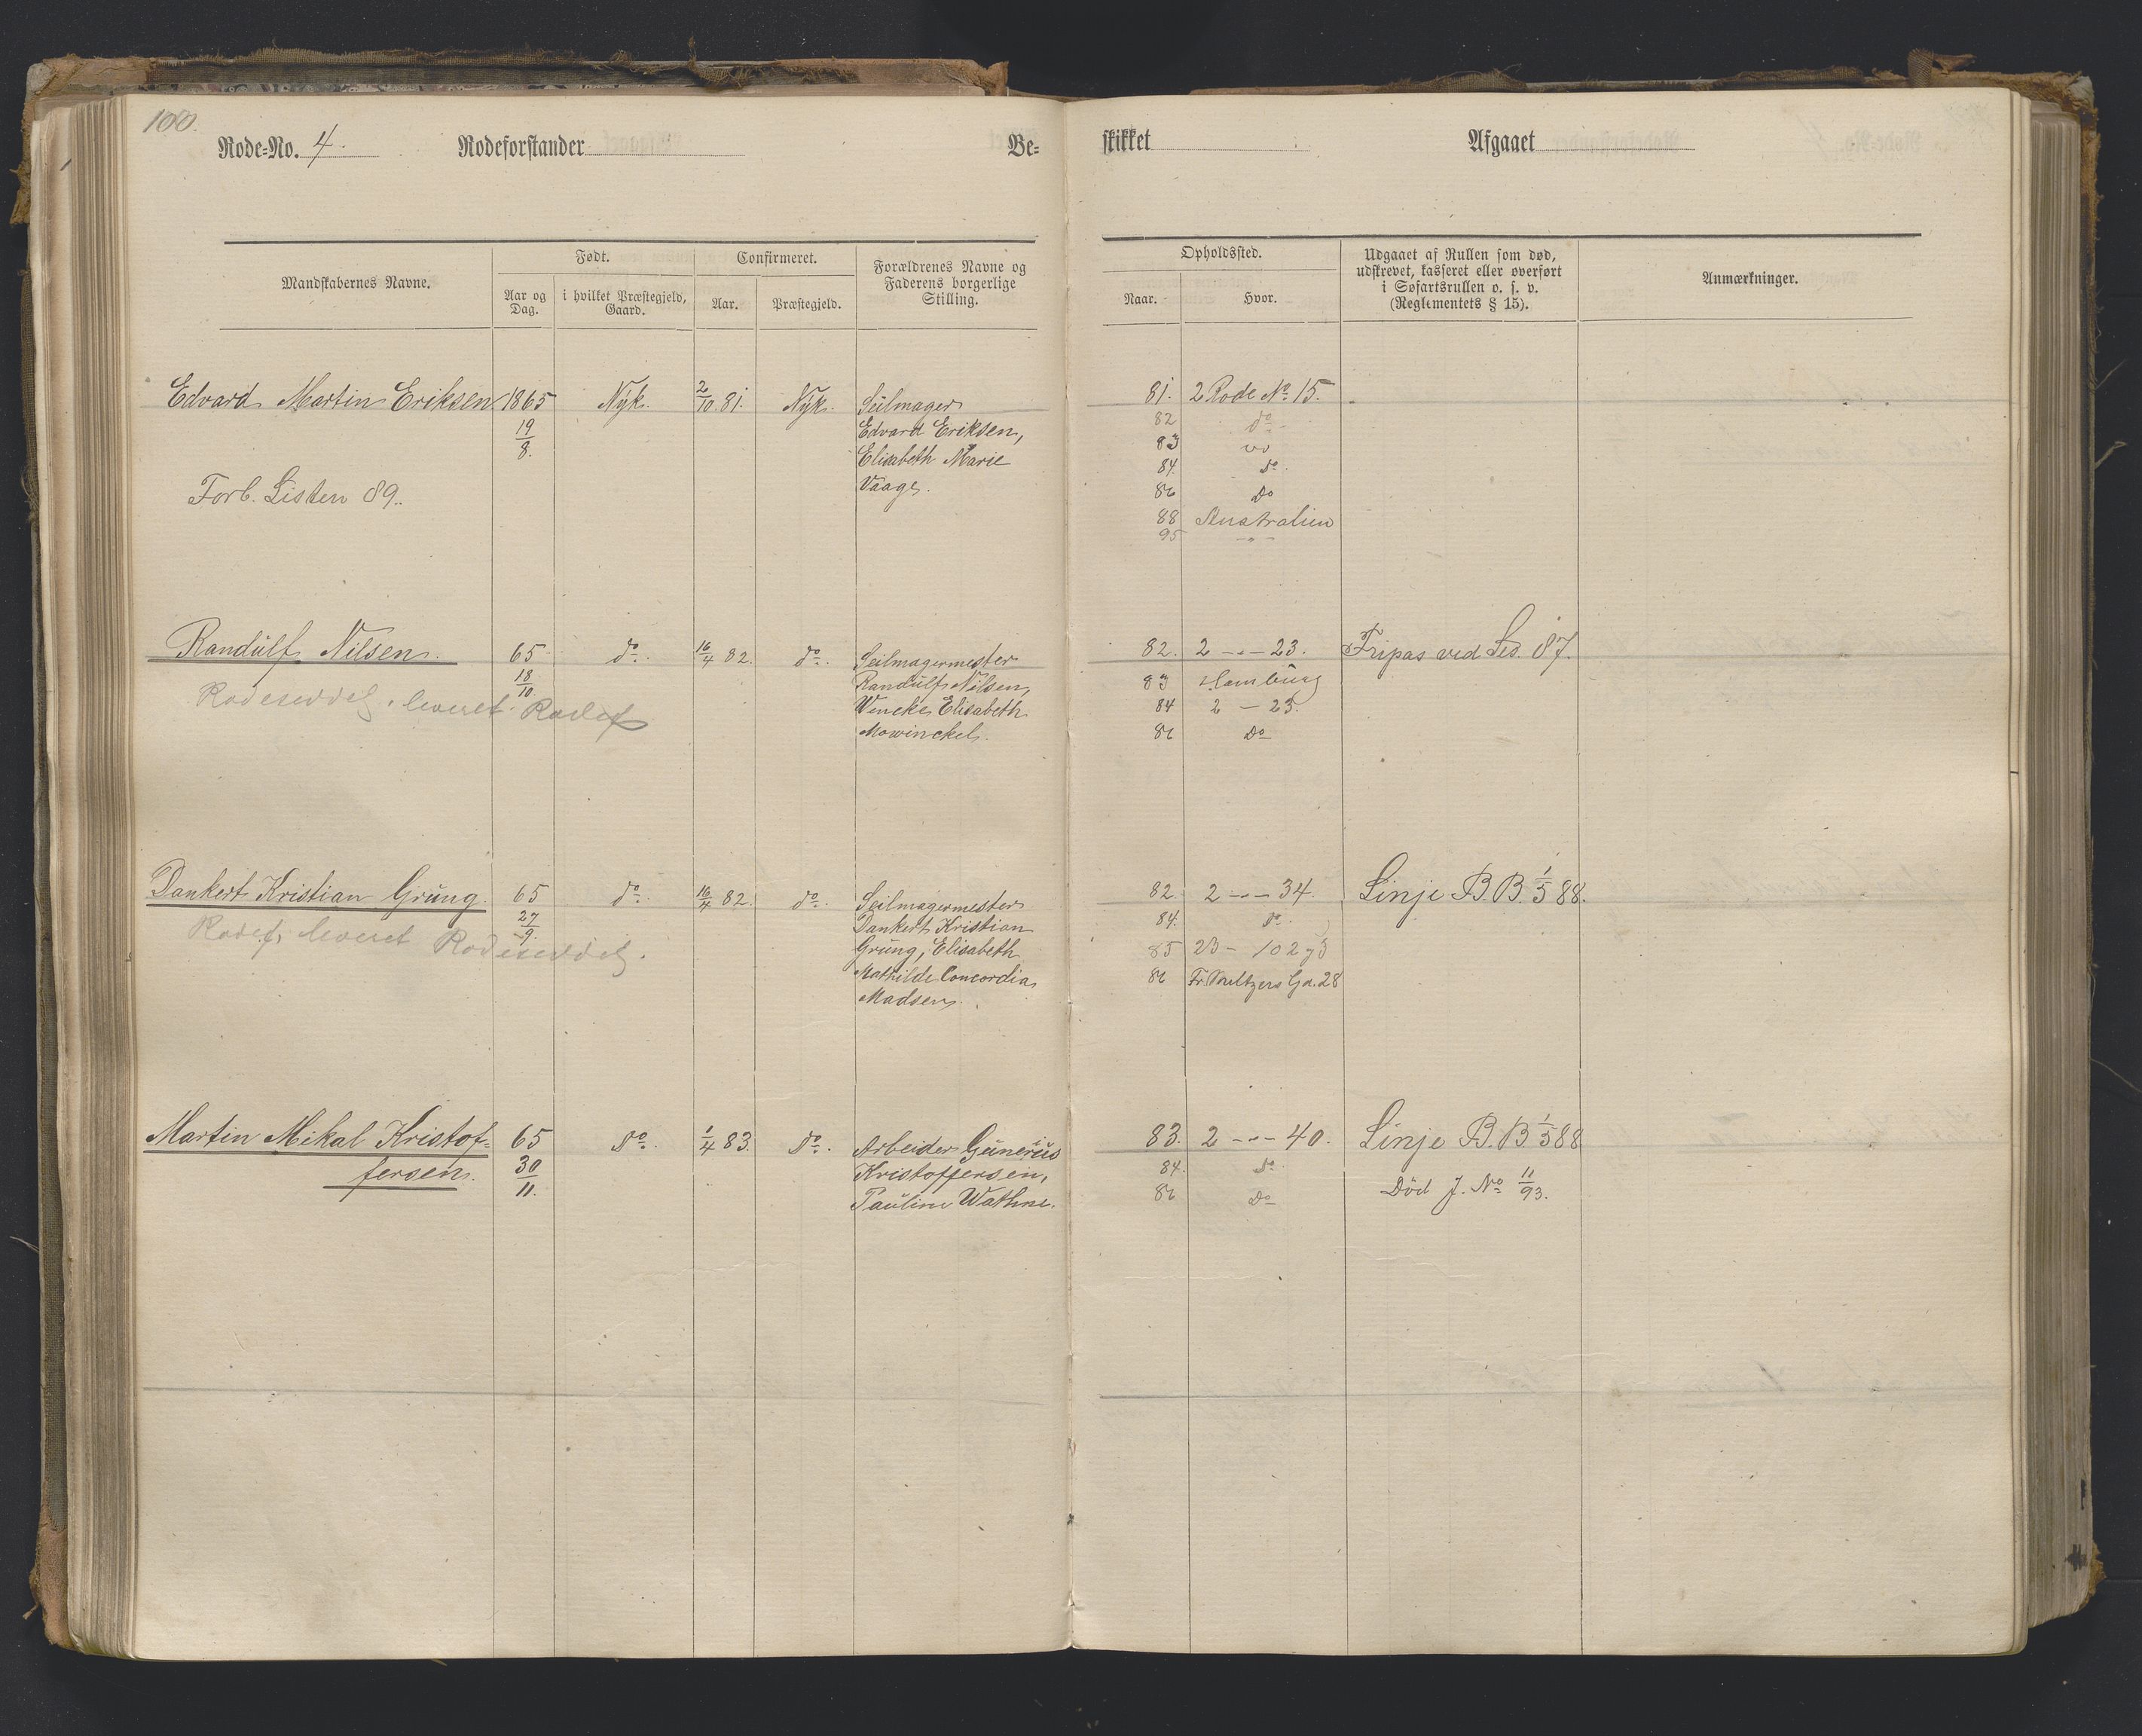 100.
Rode-No. 4. Rodeforstander Be-
skikket Afgaaet
Mandskabernes Navne.
Født.
Aar og Dag.
i hvilket Præstegjeld, Gaard.
Confirmeret.
Aar.
Præstegjeld.
Forældrenes Navne og
Faderens borgerlige
Stilling.
Opholdssted.
Naar.
Hvor.
Udgaaet af Rullen som død,
udskrevet, kasseret eller overført
i Søfartsrullen o. s. v.
(Reglementets § 15).
Anmærkninger.
Edvard Martin Eriksen 1865 Nyk. 2/10 81. Nyk. Seilmager
19/8. Edvard Eriksen,
Elisabeth Marie
Forb. Listen 89. Vaage.
81. 2 Rode No 15.
82 do
83 do
84. do
86 Do
88 Australien
95 - " -
Randulf Nilsen. 65 do. 16/4 82. do. Seilmagermester
18/10. Randulf Nilsen,
Rodeseddel leveret Rodef Wencke Elisabeth
Mowinckel.
82. 2 - " - 23. Fripas ved Ses. 87.
83 Hamburg
84 2 - 23.
86 Do
Dankert Kristian Grung 65 do. 16/4 82. do. Seilmagermester
27/9. Dankert Kristian
Rodef. leveret Rodeseddel. Grung, Elisabeth
Mathilde Concordia
Madsen.
82. 2 - " - 34. Linje B. B. 1/5 88.
84. do.
85 23 -
86 Fr. Meltzers Gd. 28
Martin Mikal Kristof- 65 do. 1/4 83. do. Arbeider Gunerius
fersen. 30/11. Kristoffersen,
Pauline Wathne.
83. 2 - " - 40. Linje B. B 1/5 88
84. do.
86 Do
Død J. No 11/93.